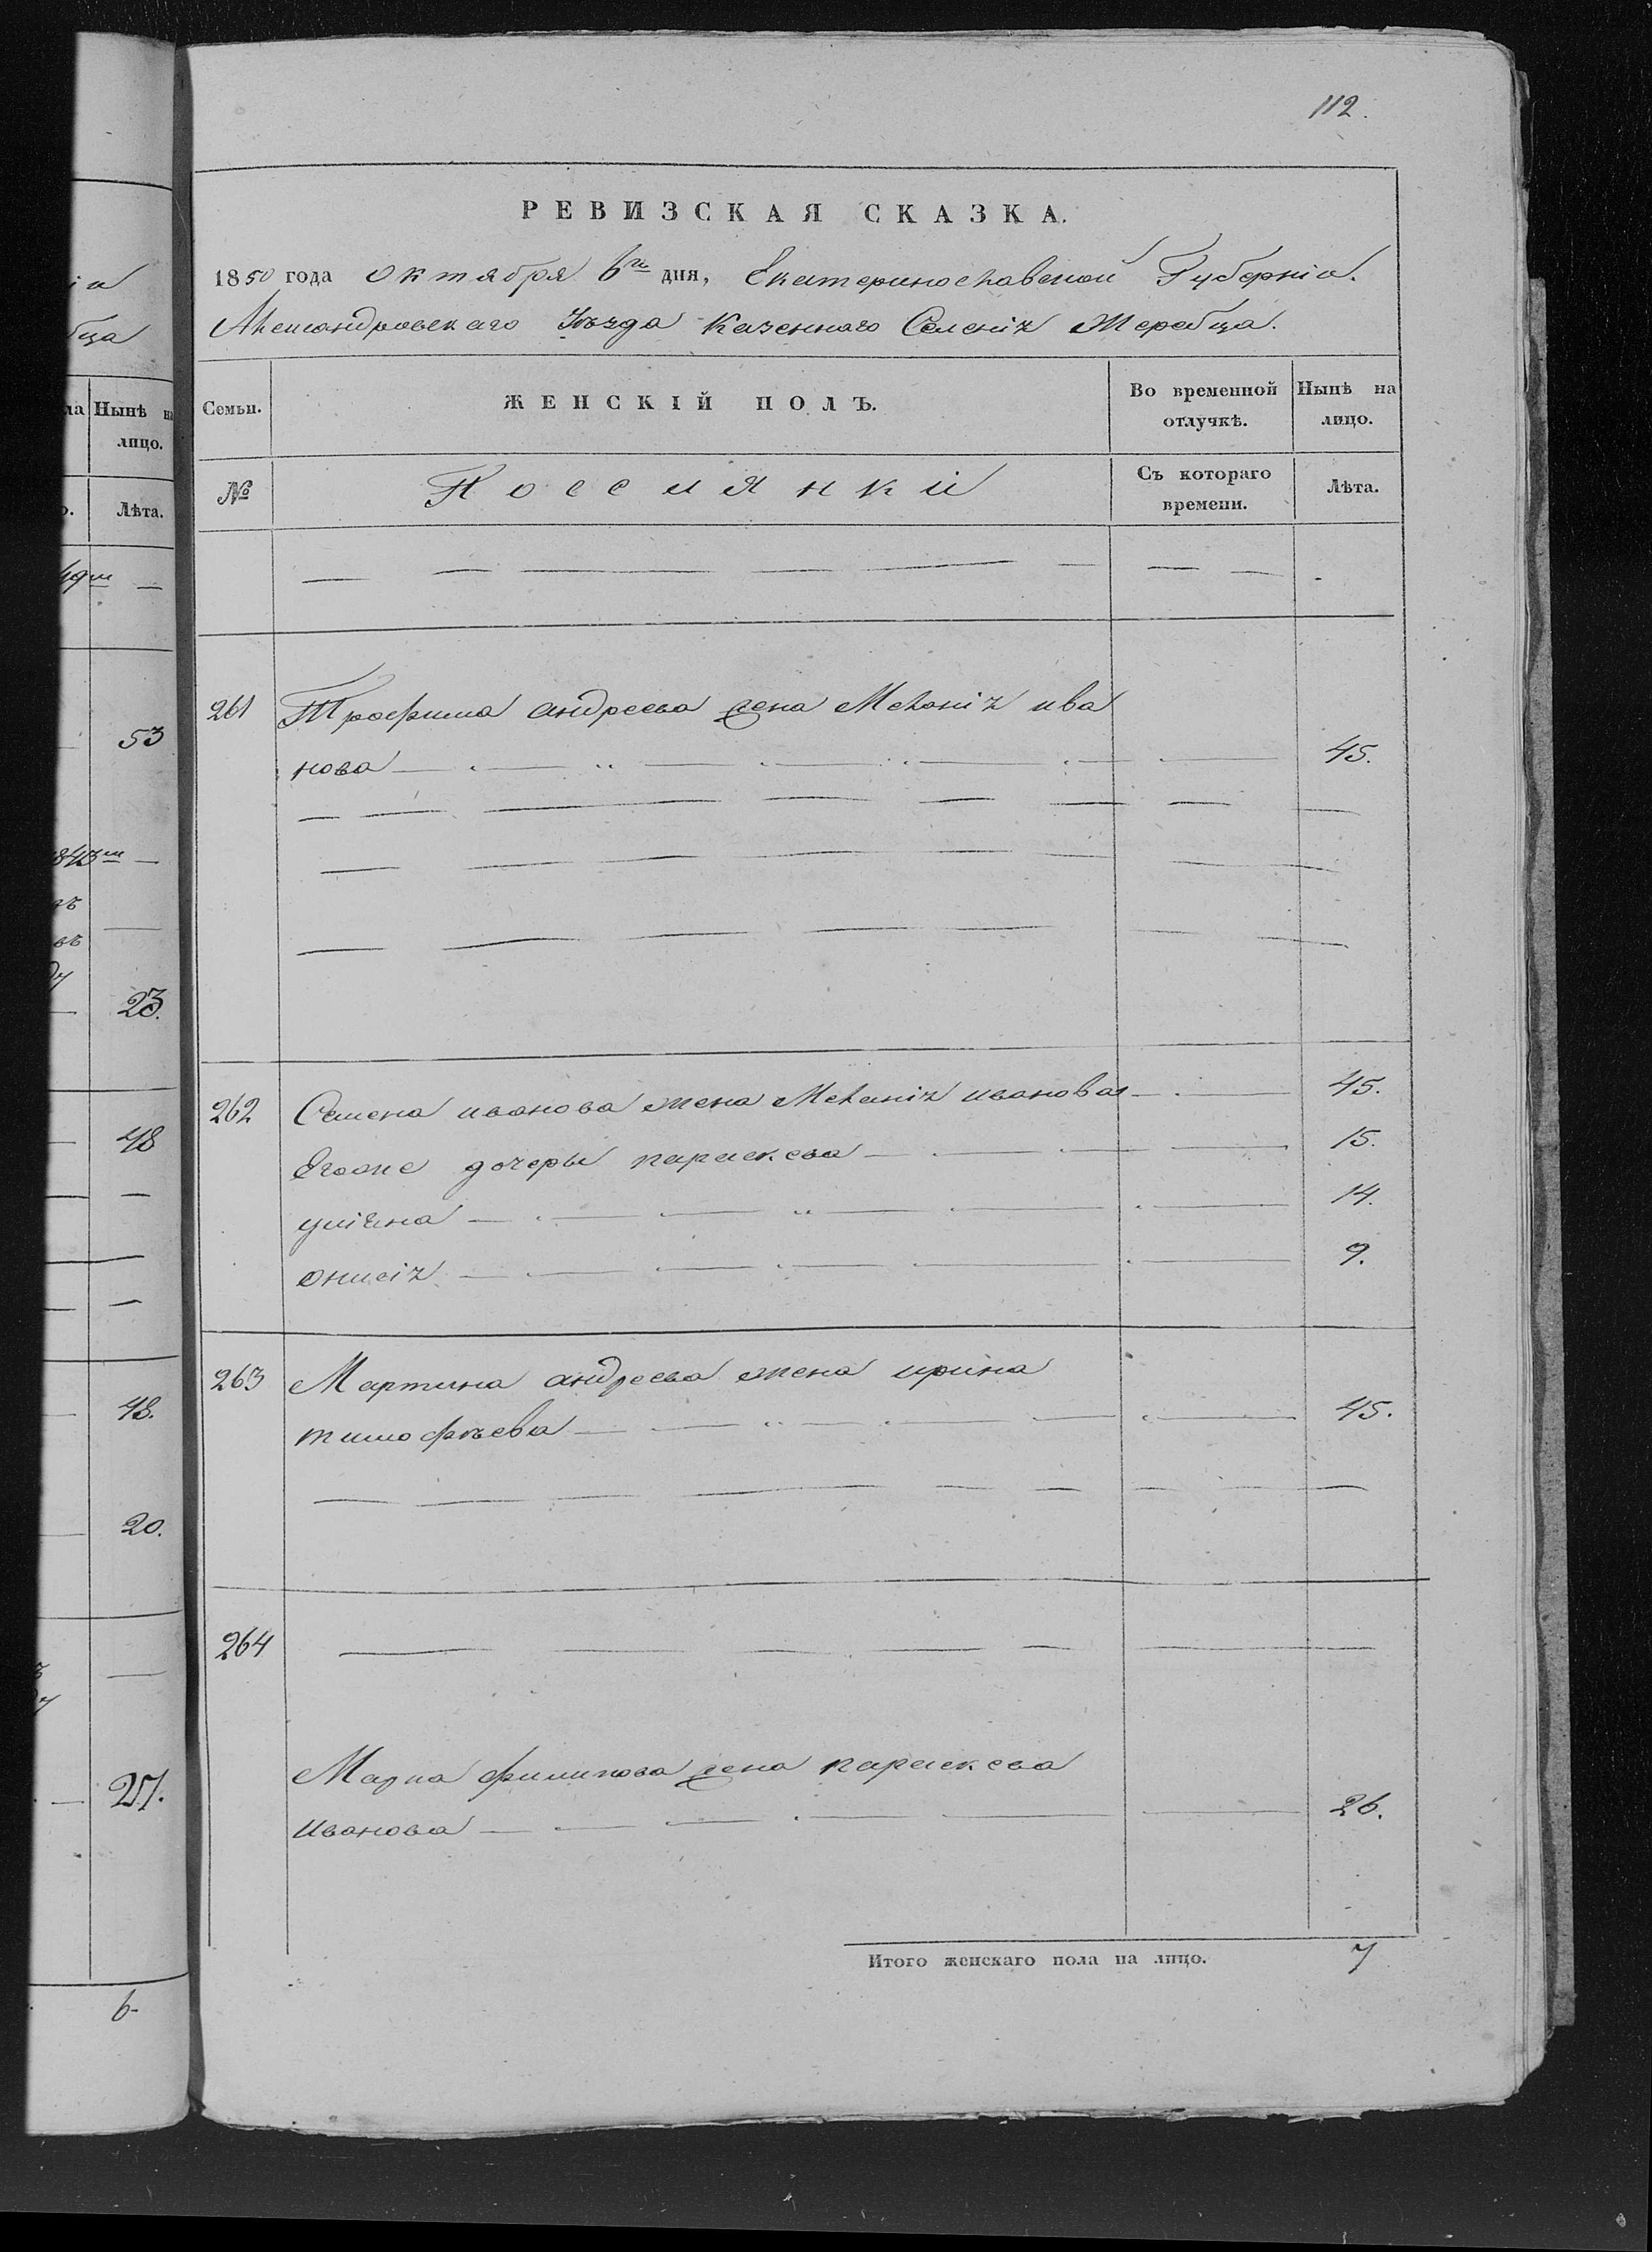 112.
РЕВИЗСКАЯ СКАЗКА.
1850 года октября 6го дня, Екатеринославской Губерніи.
Александровскаго Уѣзда Казеннаго Селенія Жеребца.
Семьи.
ЖЕНСКІЙ ПОЛЪ.
Во временной отлучкѣ.
Нынѣ на лицо.
№
Поселянки
Съ котораго времени.
Лѣта.
261 Трофима андреева жена Меланія ива
нова 45.
262 Семена иванова жена Меланія иванова 45.
Егоже дочеры параскева 15.
уліяна 14.
онисія 9.
263 Мартина андреева жена ирина
тимофѣева 45.
264
Марка филипова жена параскева
иванова 26.
Итого женскаго пола на лицо. 7
Нынѣ
лицо.
Лѣта.
53
23.
48
48.
20.
27.
6